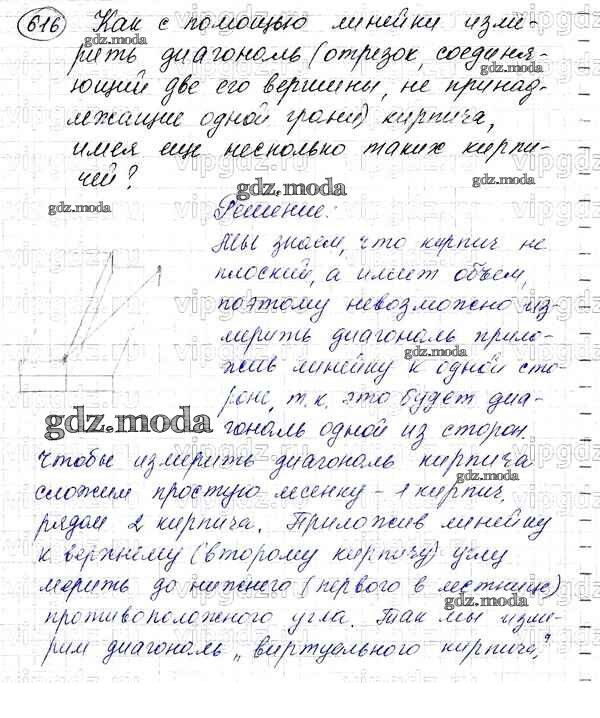 616 Как с помощью линейки изме-
рить диагональ (отрезок, соединя-
ющий две его вершины, не принад-
лежащие одной грани) кирпича,
имея еще несколько таких кирпи-
чей?
gdz.moda
gdz.moda
gdz.moda
gdz.moda
gdz.moda
Решение:
Мы знаем, что кирпич не
плоский, а имеет объем,
поэтому невозможно из-
мерить диагональ прило-
gdz.moda
жив линейку к одной сто-
роне, т.к. это будет диа-
gdz.moda
гональ одной из сторон.
Чтобы измерить диагональ кирпича
сложим простую лесенку - 1 кирпич,
рядом 2 кирпича. Приложив линейку
к верхнему (второму кирпичу) углу
мерить до нижнего (первого в лестнице)
gdz.moda
противоположного угла. Так мы изме-
рим диагональ „виртуального кирпича."